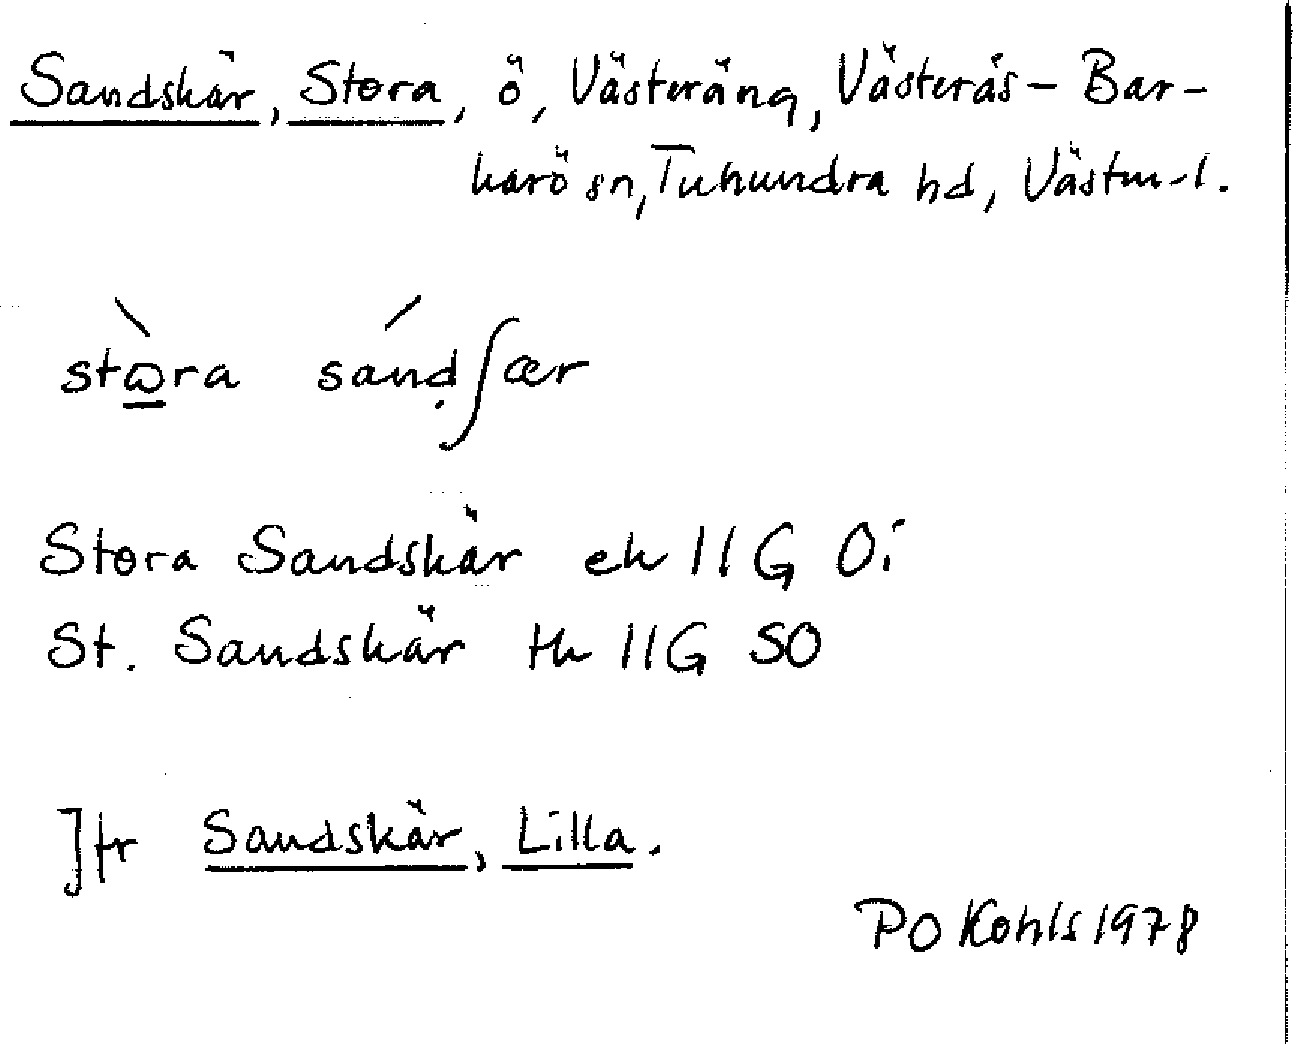 Sandskär, Stora, ö, Västeräng, Västerås-Bar-
karö sn, Tuhundra hd, Västm.l.
stɷ̀ra sánd̩ʃær
Stora Sandskär ek 11G 0i
St. Sandskär tk 11G SO
Jfr Sandskär, Lilla.
PO Kohls 1978